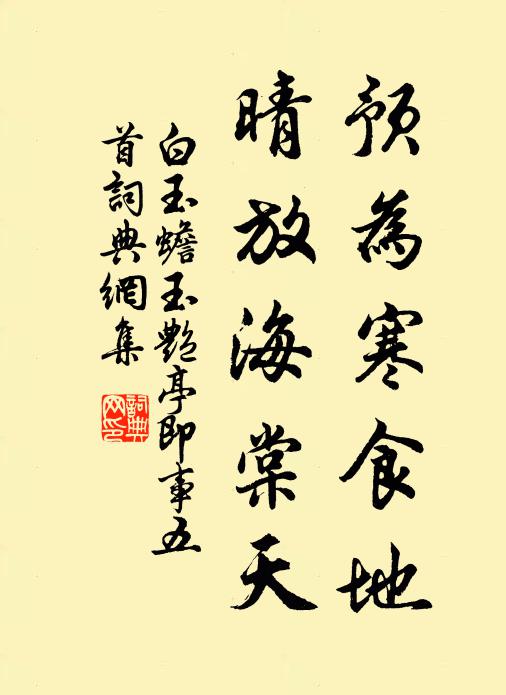 預為寒食地
晴放海棠天
白玉蟾玉艷亭即事五
首詞典網集
詞典
网印